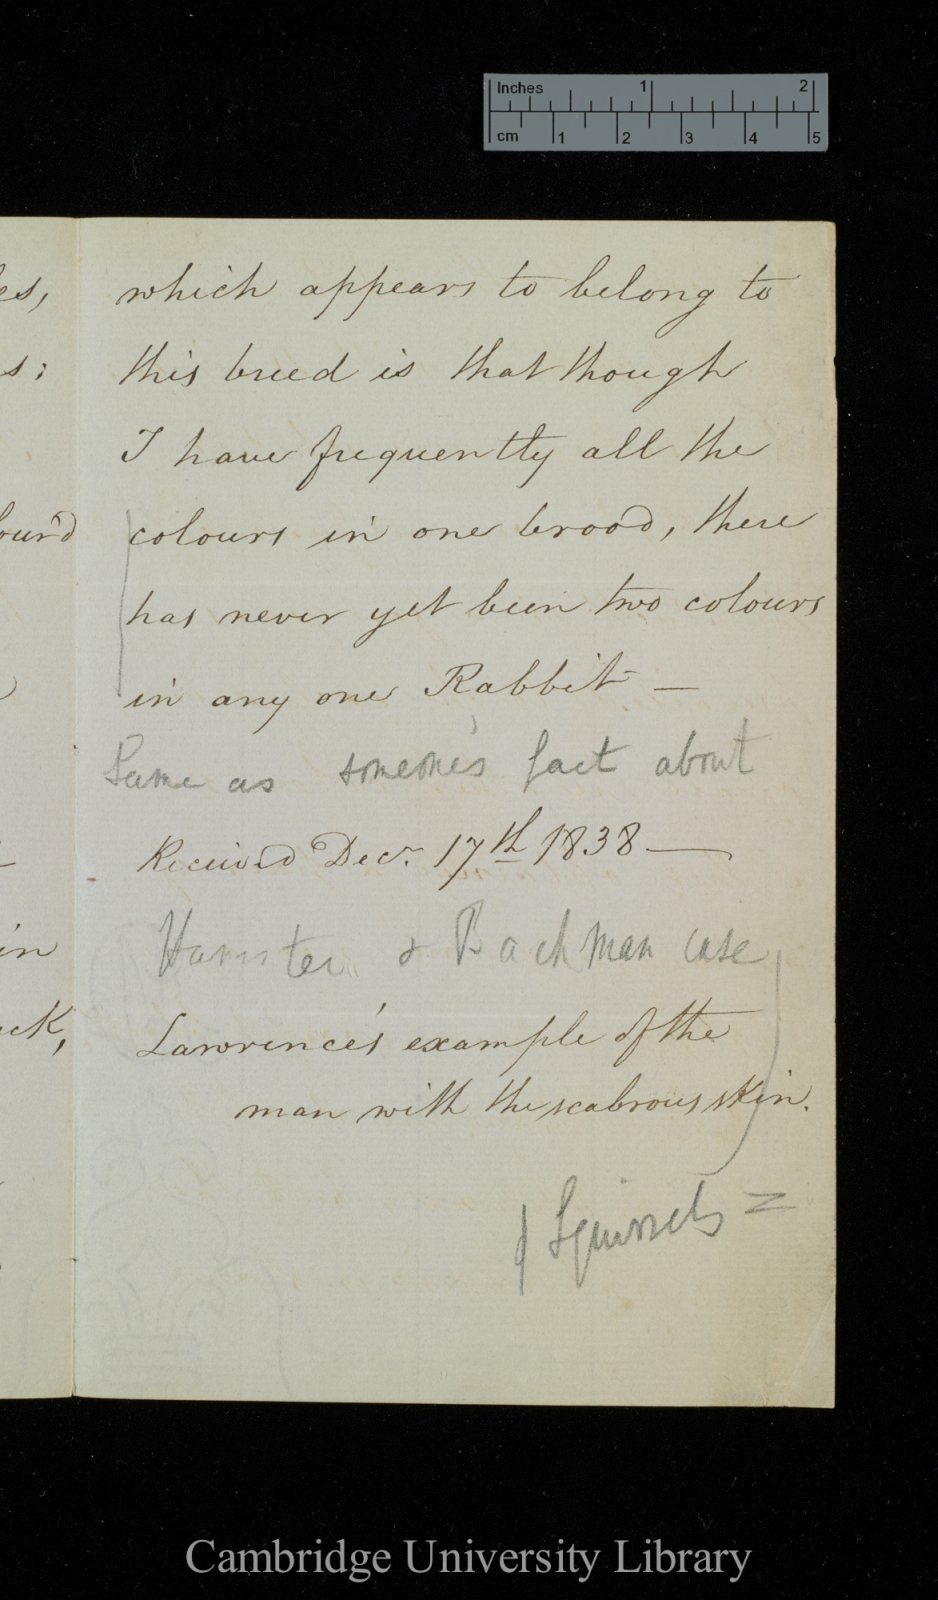 Inches 1 2
cm 1 2 3 4 5
es,
which appears to belong to
s;
this breed is that though
I have frequently all the
lour'd
colours in one brood, there
has never yet been two colours
in any one Rabbit —
Same as someone's fact about
Received Decr. 17th 1838 —
Hamster & Bachman case
in
ck,
Lawrence's example of the
man with the scabrous skin.
of Squirrels =
Cambridge University Library